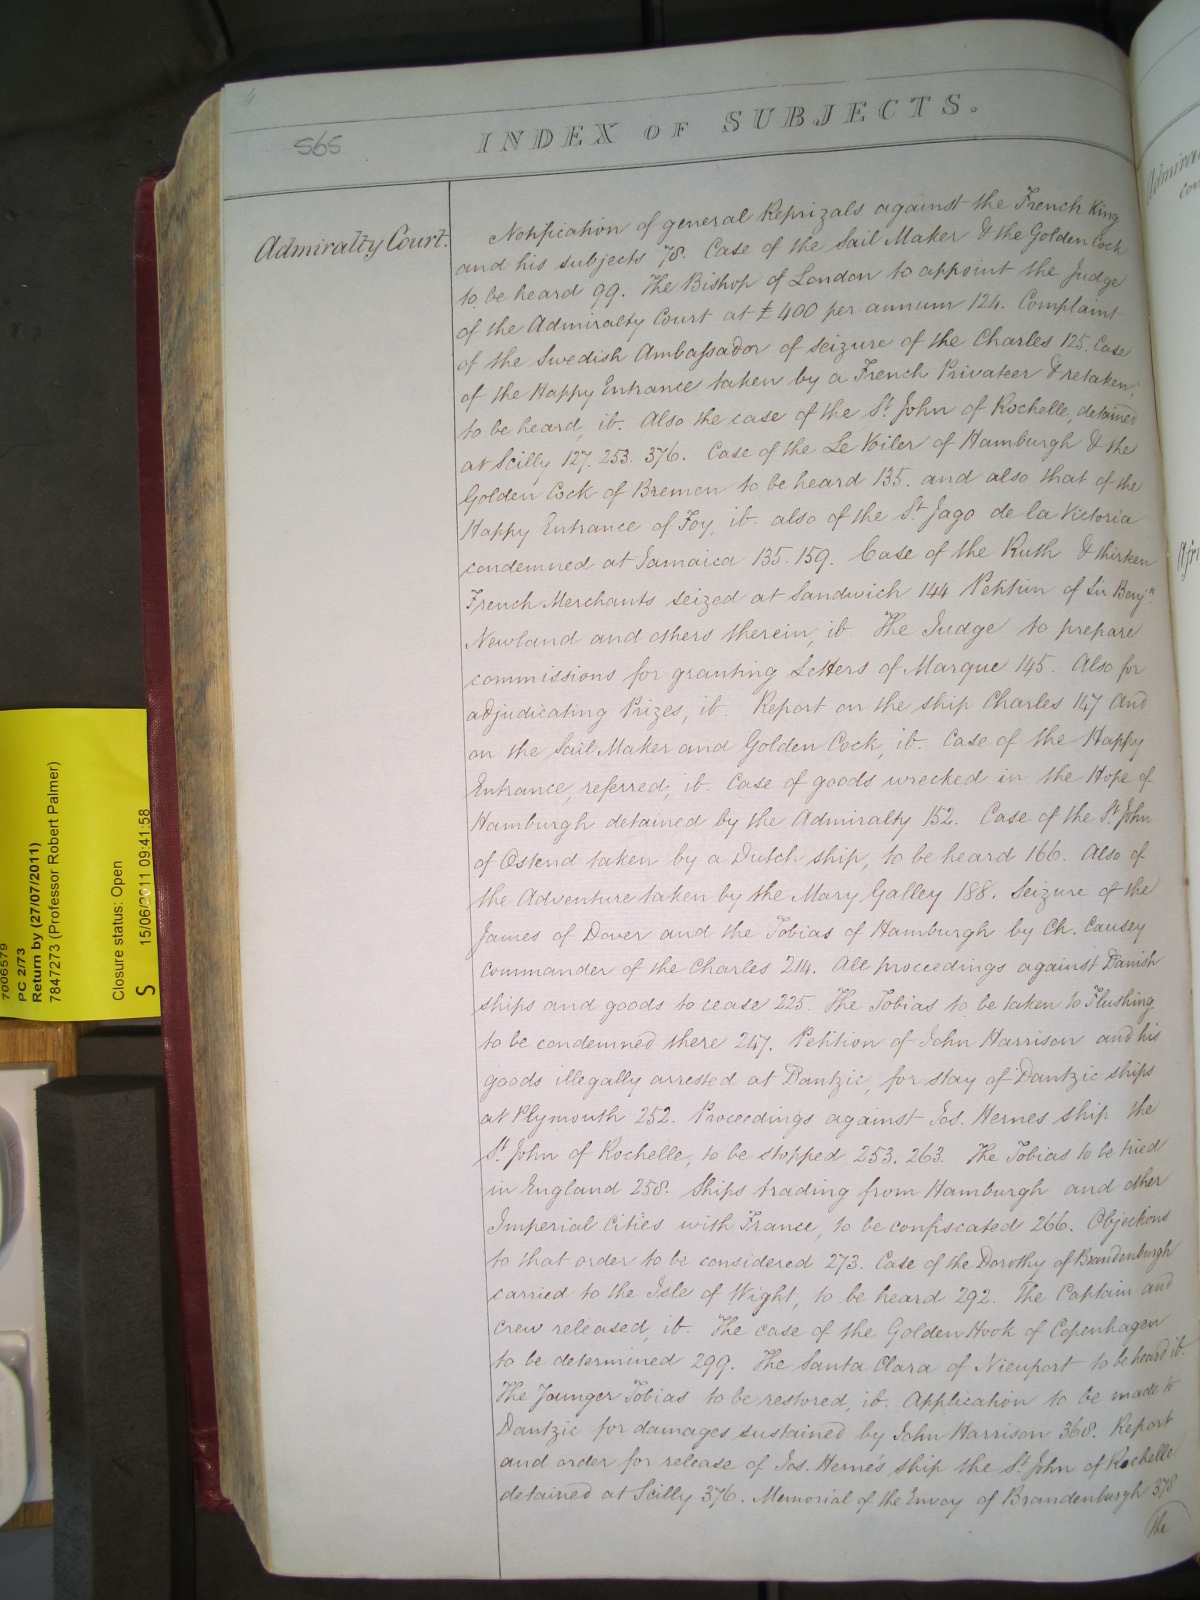 4
565
INDEX OF SUBJECTS.
Admiralty Court.
Notification of general Reprizals against the French King
and his subjects 78. Case of the Sail Maker & the Golden Cock
to be heard 99. The Bishop of London to appoint the Judge
of the Admiralty Court at £400 per annum 124. Complaint
of the Swedish Ambassador of seizure of the Charles 125. Case
of the Happy Entrance taken by a French Privateer & retaken,
to be heard, ib. Also the case of the St. John of Rochelle, detained
at Scilly 127. 253. 376. Case of the Le Voiler of Hamburgh & the
Golden Cock of Bremen to be heard 135. and also that of the
Happy Entrance of Foy, ib. also of the St. Jago de la Victoria
condemned at Jamaica 135. 159. Case of the Ruth & thirteen
French Merchants seized at Sandwich 144 Petition of Sir Benjn.
Newland and others therein, ib. The Judge to prepare
commissions for granting Letters of Marque 145. Also for
adjudicating Prizes, ib. Report on the ship Charles 147 And
on the Sail Maker and Golden Cock, ib. Case of the Happy
Entrance, referred, ib. Case of goods wrecked in the Hope of
Hamburgh detained by the Admiralty 152. Case of the St. John
of Ostend taken by a Dutch ship, to be heard 166. Also of
the Adventure taken by the Mary Galley 188. Seizure of the
James of Dover and the Tobias of Hamburgh by Ch. Causey
commander of the Charles 214. All proceedings against Danish
ships and goods to cease 225. The Tobias to be taken to Flushing
to be condemned there 247. Petition of John Harrison and his
goods illegally arrested at Dantzic, for stay of Dantzic ships
at Plymouth 252. Proceedings against Jos. Hernes ship the
St. John of Rochelle, to be stopped 253. 263. The Tobias to be tried
in England 258. Ships trading from Hamburgh and other
Imperial Cities with France, to be confiscated 266. Objections
to that order to be considered 273. Case of the Dorothy of Brandenburgh
carried to the Isle of Wight, to be heard 292. The Captain and
crew released, ib. The case of the Golden Hook of Copenhagen
to be determined 299. The Santa Clara of Nieuport to be heard ib.
The Younger Tobias to be restored, ib. Application to be made to
Dantzic for damages sustained by John Harrison 368. Report
and order for release of Jos. Herne's ship the St. John of Rochelle
detained at Scilly 376. Memorial of the Envoy of Brandenburgh 378
The
7006579
PC 2/73
Return by (27/07/2011)
7847273 (Professor Robert Palmer)
Closure status: Open
S 15/06/2011 09:41:58